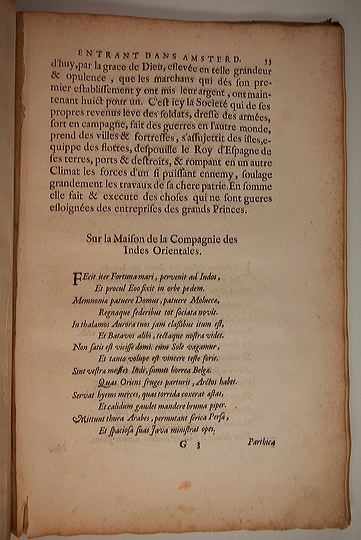 ENTRANT DANS AMSTERD. 53
d'huy, par la grace de Dieu, esllevée en telle grandeur
& opulence, que les marchans qui dés son pre-
mier establissement y ont mis leur argent, ont main-
tenant huict pour un. C'est icy la Societé qui de ses
propres revenus leve des soldats, dresse des armées,
sort en campagne, fait des guerres en l'autre monde,
prend des villes & fortresses, s'assujettit des isles, e-
quippe des flottes, despouille le Roy d'Espagne de
ses terres, ports & destroits, & rompant en un autre
Climat les forces d'un si puissant ennemy, soulage
grandement les travaux de sa chere patrie. En somme
elle fait & execute des choses qui ne sont gueres
esloignées des entreprises des grands Princes.
Sur la Maison de la Compagnie des
Indes Orientales.
FEcit iter Fortuna mari, pervenit ad Indos,
Et procul Eoo fixit in orbe pedem.
Memnonia patuere Domus, patuere Molucca,
Regnaque federibus tot sociata novis.
In thalamos Aurora tuos jam classibus itum est,
Et Batavos alibi, tectaque nostra vides.
Non satis est vicisse domi: cum Sole vagamur,
Et tanto volupe est vincere teste foris.
Sint vestra messes Indi, sumus horrea Belgæ.
Quas Oriens fruges parturit, Arctos habet.
Servat hyems merces, quas torrida coxerat æstas,
Et calidum gaudet mandere bruma piper.
Mittunt thura Arabes, permutant serica Persæ,
Et spaciosa suas Java ministrat opes.
G 3 Parthica